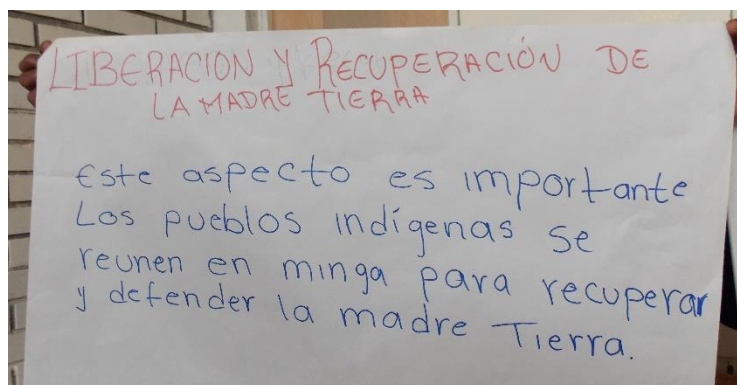 LIBERACION Y RECUPERACIÓN DE
LA MADRE TIERRA
Este aspecto es importante
Los pueblos indígenas se
reunen en minga para recuperar
y defender la madre Tierra.